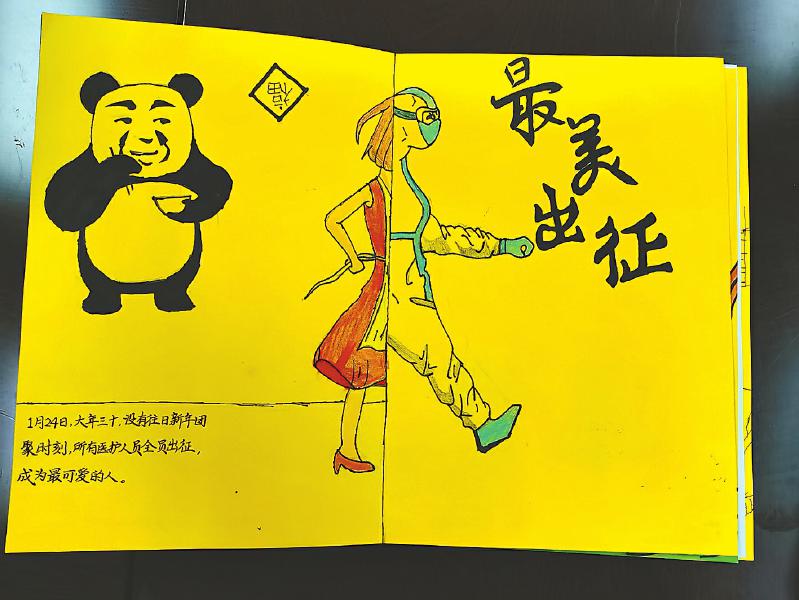 福
最美出征
1月24日,大年三十,没有往日新年团
聚时刻,所有医护人员全员出征,
成为最可爱的人。